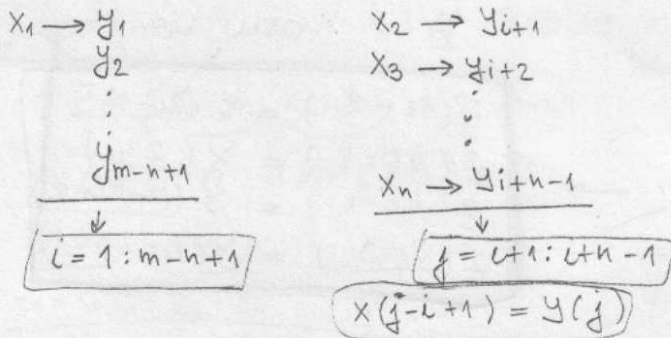 x₁ → y₁
y₂
⋮
y_{m-n+1}
↓
i = 1 : m-n+1
x₂ → y_{i+1}
x₃ → y_{i+2}
⋮
x_n → y_{i+n-1}
↓
j = i+1 : i+n-1
x(j-i+1) = y(j)